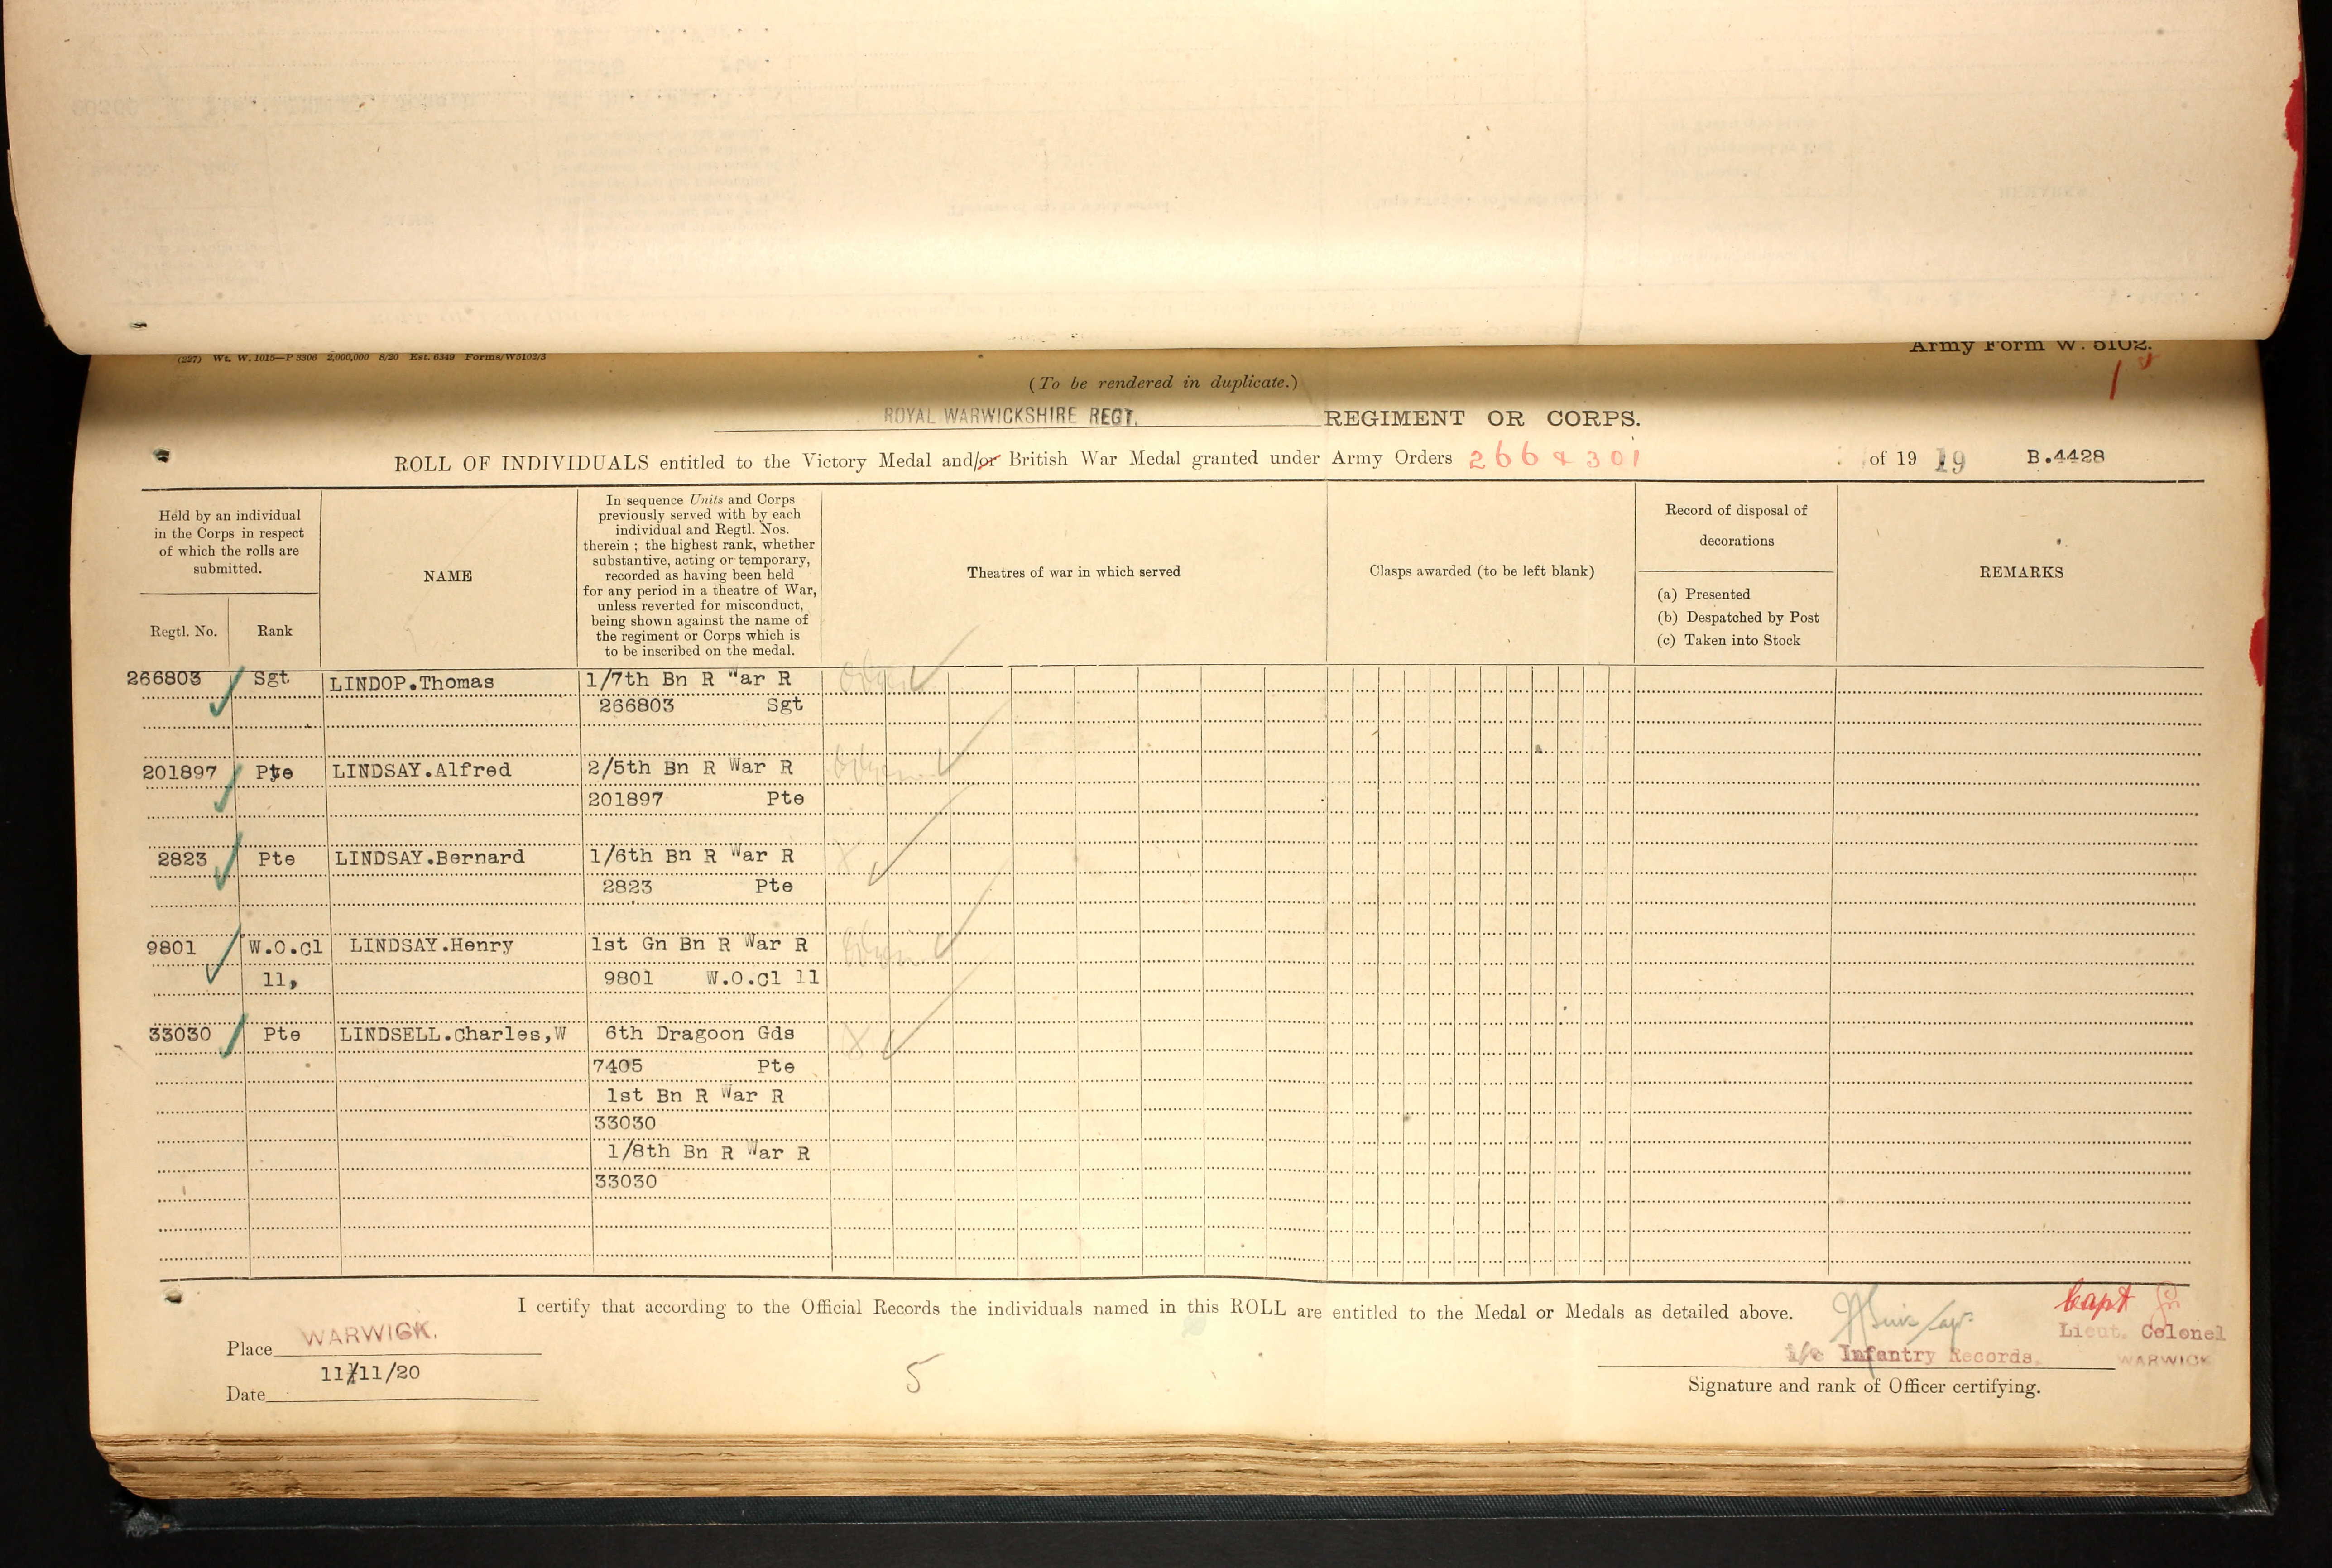 (227) Wt. W. 1015—P 3306 2,000,000 8/20 Est. 6349 Forms/W5102/3
Army Form W. 5102.
(To be rendered in duplicate.)
ROYAL WARWICKSHIRE REGT. REGIMENT OR CORPS.
ROLL OF INDIVIDUALS entitled to the Victory Medal and/or British War Medal granted under Army Orders 266 & 301 of 19 19 B.4428
Held by an individual
in the Corps in respect
of which the rolls are
submitted.
Regtl. No.
Rank
NAME
In sequence Units and Corps
previously served with by each
individual and Regtl. Nos.
therein ; the highest rank, whether
substantive, acting or temporary,
recorded as having been held
for any period in a theatre of War,
unless reverted for misconduct,
being shown against the name of
the regiment or Corps which is
to be inscribed on the medal.
Theatres of war in which served
Clasps awarded (to be left blank)
Record of disposal of
decorations
(a) Presented
(b) Despatched by Post
(c) Taken into Stock
REMARKS
266803 Sgt LINDOP.Thomas 1/7th Bn R War R
266803 Sgt
201897 Pte LINDSAY.Alfred 2/5th Bn R War R
201897 Pte
2823 Pte LINDSAY.Bernard 1/6th Bn R War R
2823 Pte
9801 W.O.Cl LINDSAY.Henry 1st Gn Bn R War R
11, 9801 W.O.Cl 11
33030 Pte LINDSELL.Charles,W 6th Dragoon Gds
7405 Pte
1st Bn R War R
33030
1/8th Bn R War R
33030
I certify that according to the Official Records the individuals named in this ROLL are entitled to the Medal or Medals as detailed above.
Capt
Lieut. Colonel
Place WARWICK.
i/c Infantry Records,
WARWICK
Date 11/11/20
5
Signature and rank of Officer certifying.